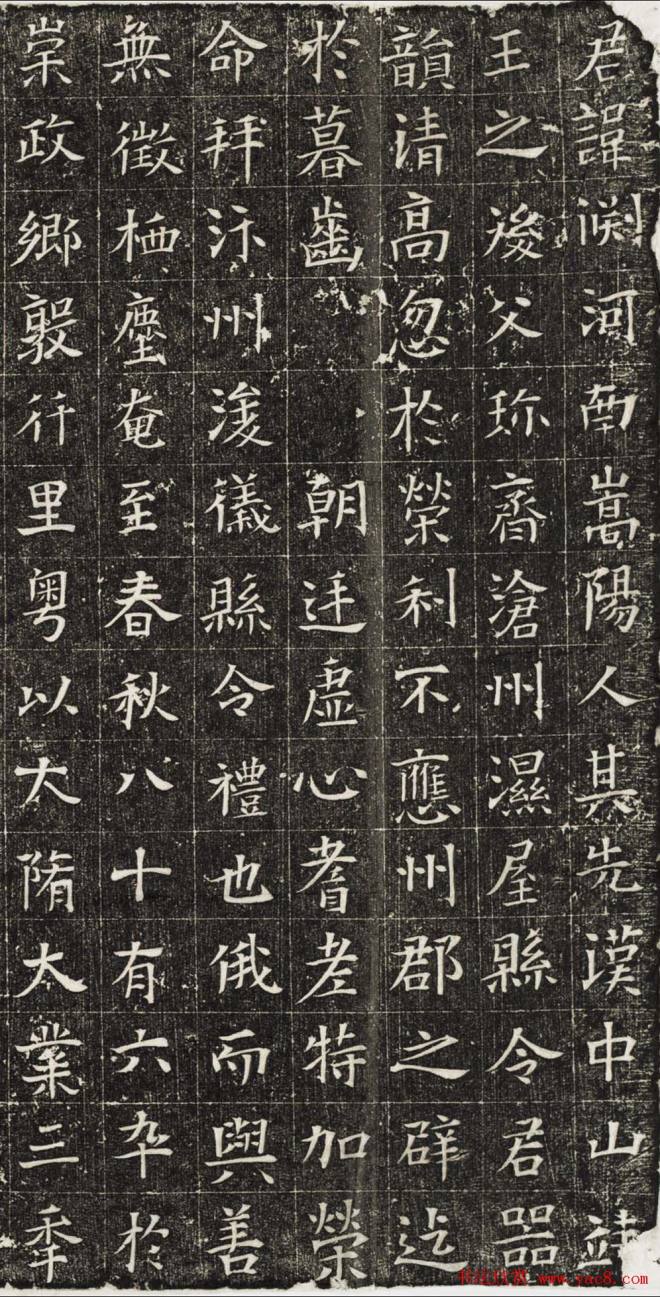 君諱渊河南嵩陽人其先漢中山靖
王之後父珎齊滄州濕屋縣令君器
韻清高忽於榮利不應州郡之辟迄
於暮齒朝廷虛心耆老特加榮
命拜汴州浚儀縣令禮也俄而與善
無徵栖塵奄至春秋八十有六卒於
崇政鄉毅行里粤以大隋大業三年
www.yac8.com